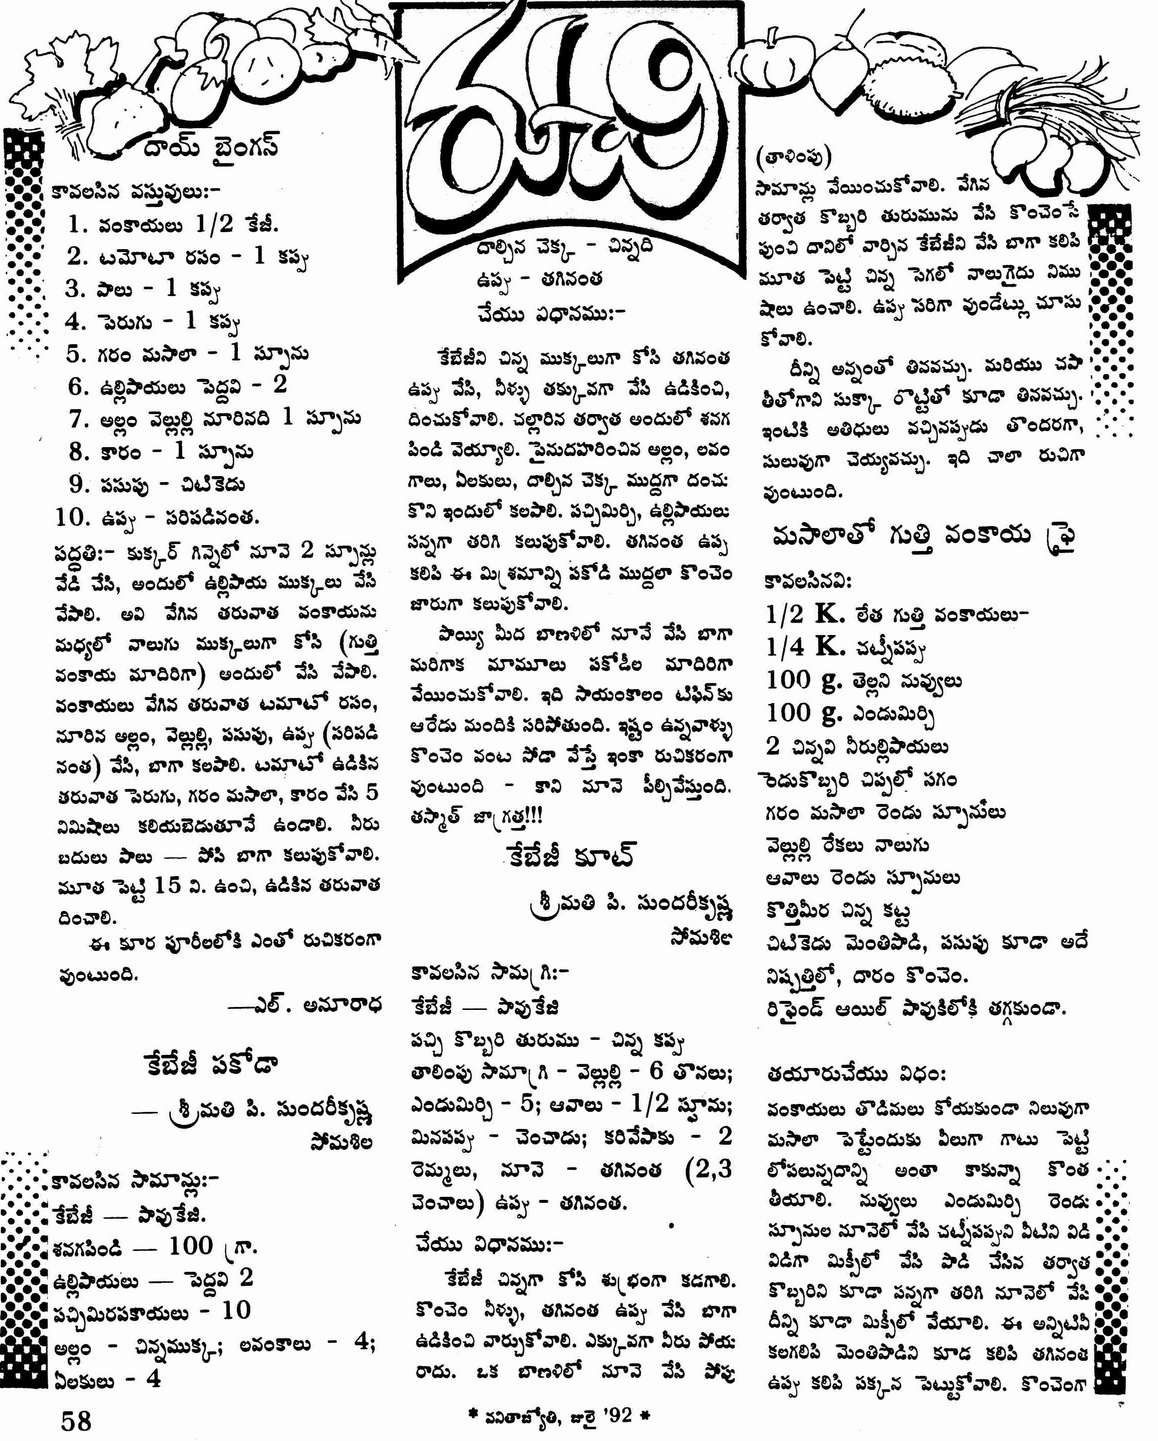 రుచి
దాయ్ బైంగన్
కావలసిన వస్తువులు:-
1. వంకాయలు 1/2 కేజీ.
2. టమోటా రసం - 1 కప్పు
3. పాలు - 1 కప్పు
4. పెరుగు - 1 కప్పు
5. గరం మసాలా - 1 స్పూను
6. ఉల్లిపాయలు పెద్దవి - 2
7. అల్లం వెల్లుల్లి నూరినది 1 స్పూను
8. కారం - 1 స్పూను
9. పసుపు - చిటికెడు
10. ఉప్పు - సరిపడినంత.
పద్ధతి:- కుక్కర్ గిన్నెలో నూనె 2 స్పూన్లు
వేడి చేసి, అందులో ఉల్లిపాయ ముక్కలు వేసి
వేపాలి. అవి వేగిన తరువాత వంకాయను
మధ్యలో నాలుగు ముక్కలుగా కోసి (గుత్తి
వంకాయ మాదిరిగా) అందులో వేసి వేపాలి.
వంకాయలు వేగిన తరువాత టమాటో రసం,
నూరిన అల్లం, వెల్లుల్లి, పసుపు, ఉప్పు (సరిపడి
నంత) వేసి, బాగా కలపాలి. టమాటో ఉడికిన
తరువాత పెరుగు, గరం మసాలా, కారం వేసి 5
నిమిషాలు కలియబెడుతూనే ఉండాలి. నీరు
బదులు పాలు — పోసి బాగా కలుపుకోవాలి.
మూత పెట్టి 15 ని. ఉంచి, ఉడికిన తరువాత
దించాలి.
ఈ కూర పూరీలలోకి ఎంతో రుచికరంగా
వుంటుంది.
—ఎల్. అనూరాధ
కేబేజీ పకోడా
— శ్రీమతి పి. సుందరీకృష్ణ
సోమశిల
కావలసిన సామాన్లు:-
కేబేజీ — పావుకేజి.
శనగపిండి — 100 గ్రా.
ఉల్లిపాయలు — పెద్దవి 2
పచ్చిమిరపకాయలు - 10
అల్లం - చిన్నముక్క; లవంకాలు - 4;
ఏలకులు - 4
దాల్చిన చెక్క - చిన్నది
ఉప్పు - తగినంత
చేయు విధానము:-
కేబేజీని చిన్న ముక్కలుగా కోసి తగినంత
ఉప్పు వేసి, నీళ్ళు తక్కువగా వేసి ఉడికించి,
దించుకోవాలి. చల్లారిన తర్వాత అందులో శనగ
పిండి వెయ్యాలి. పైనుదహరించిన అల్లం, లవం
గాలు, ఏలకులు, దాల్చిన చెక్క ముద్దగా దంచు
కొని ఇందులో కలపాలి. పచ్చిమిర్చి, ఉల్లిపాయలు
సన్నగా తరిగి కలుపుకోవాలి. తగినంత ఉప్పు
కలిపి ఈ మిశ్రమాన్ని పకోడి ముద్దలా కొంచెం
జారుగా కలుపుకోవాలి.
పొయ్యి మీద బాణళిలో నూనే వేసి బాగా
మరిగాక మామూలు పకోడీల మాదిరిగా
వేయించుకోవాలి. ఇది సాయంకాలం టిఫిన్‌కు
ఆరేడు మందికి సరిపోతుంది. ఇష్టం ఉన్నవాళ్ళు
కొంచెం వంట సోడా వేస్తే ఇంకా రుచికరంగా
వుంటుంది - కాని నూనె పీల్చివేస్తుంది.
తస్మాత్ జాగ్రత్త!!!
కేబేజీ కూట్
శ్రీమతి పి. సుందరీకృష్ణ
సోమశిల
కావలసిన సామగ్రి:-
కేబేజీ — పావుకేజి
పచ్చి కొబ్బరి తురుము - చిన్న కప్పు
తాలింపు సామాగ్రి - వెల్లుల్లి - 6 తొనలు;
ఎండుమిర్చి - 5; ఆవాలు - 1/2 స్పూను;
మినపప్పు - చెంచాడు; కరివేపాకు - 2
రెమ్మలు, నూనె - తగినంత (2,3
చెంచాలు) ఉప్పు - తగినంత.
చేయు విధానము:-
కేబేజీ చిన్నగా కోసి శుభ్రంగా కడగాలి.
కొంచెం నీళ్ళు, తగినంత ఉప్పు వేసి బాగా
ఉడికించి వార్చుకోవాలి. ఎక్కువగా నీరు పోయ
రాదు. ఒక బాణళిలో నూనె వేసి పోపు
(తాళింపు)
సామాన్లు వేయించుకోవాలి. వేగిన
తర్వాత కొబ్బరి తురుమును వేసి కొంచెంసే
పుంచి దానిలో వార్చిన కేబేజీని వేసి బాగా కలిపి
మూత పెట్టి చిన్న సెగలో నాలుగైదు నిము
షాలు ఉంచాలి. ఉప్పు సరిగా వుండేట్లు చూసు
కోవాలి.
దీన్ని అన్నంతో తినవచ్చు. మరియు చపా
తీతోగాని సుక్కా రొట్టితో కూడా తినవచ్చు.
ఇంటికి అతిధులు వచ్చినప్పుడు తొందరగా,
సులువుగా చెయ్యవచ్చు. ఇది చాలా రుచిగా
వుంటుంది.
మసాలాతో గుత్తి వంకాయ ఫ్రై
కావలసినవి:
1/2 K. లేత గుత్తి వంకాయలు-
1/4 K. చట్నీపప్పు
100 g. తెల్లని నువ్వులు
100 g. ఎండుమిర్చి
2 చిన్నవి నీరుల్లిపాయలు
ెండుకొబ్బరి చిప్పలో సగం
గరం మసాలా రెండు స్పూనులు
వెల్లుల్లి రేకలు నాలుగు
ఆవాలు రెండు స్పూనులు
కొత్తిమీర చిన్న కట్ట
చిటికెడు మెంతిపొడి, పసుపు కూడా అదే
నిష్పత్తిలో, దారం కొంచెం.
రిఫైండ్ ఆయిల్ పావుకిలోకి తగ్గకుండా.
తయారుచేయు విధం:
వంకాయలు తొడిమలు కోయకుండా నిలువుగా
మసాలా పెట్టేందుకు వీలుగా గాటు పెట్టి
లోపలున్నదాన్ని అంతా కాకున్నా కొంత
తీయాలి. నువ్వులు ఎండుమిర్చి రెండు
స్పూనుల నూనెలో వేసి చట్నీపప్పుని వీటిని విడి
విడిగా మిక్సీలో వేసి పొడి చేసిన తర్వాత
కొబ్బరిని కూడా సన్నగా తరిగి నూనెలో వేసి
దీన్ని కూడా మిక్సీలో వేయాలి. ఈ అన్నిటినీ
కలగలిపి మెంతిపొడిని కూడ కలిపి తగినంత
ఉప్పు కలిపి పక్కన పెట్టుకోవాలి. కొంచెంగా
58
* వనితాజ్యోతి, జులై '92 *